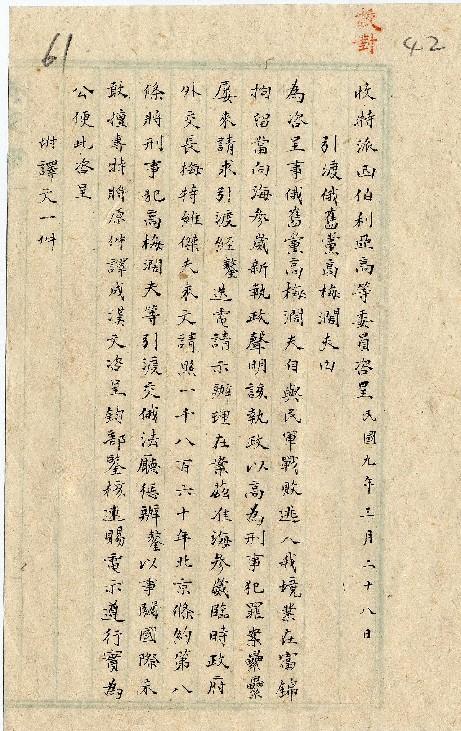 校對
42
61
收特派西伯利亞高等委員咨呈民國九年三月二十八日
引渡俄舊黨高梅潤夫由
為咨呈事俄舊黨高梅潤夫自與民軍戰敗逃入我境業在富錦
拘留當向海參崴新執政聲明該執政以高為刑事犯罪案纍纍
屢來請求引渡經鏊迭電請示辦理在案茲准海參崴臨時政府
外交長梅特維傑夫來文請照一千八百六十年北京條約第八
條將刑事犯高梅潤夫等引渡交俄法廳懲辦鏊以事關國際未
敢擅專特將原件譯成漢文咨呈鈞部鑒核速賜電示遵行實為
公便此咨呈
附譯文一件